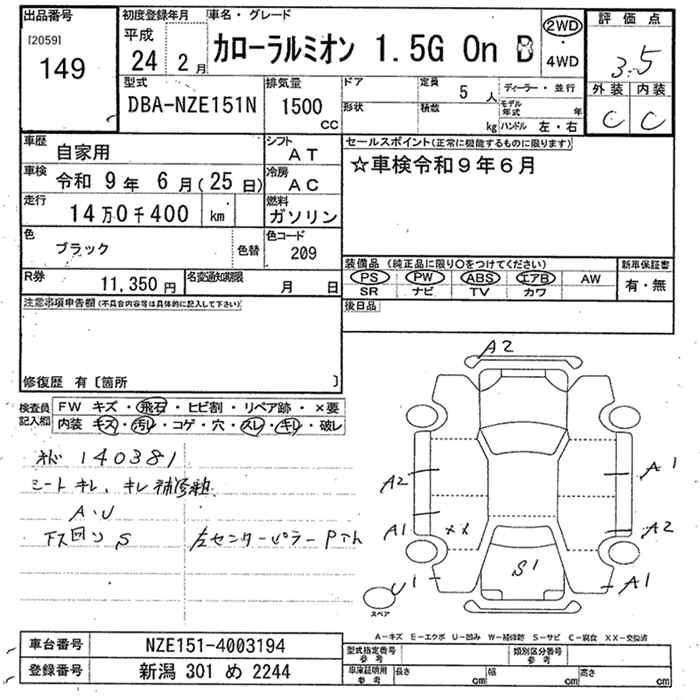 出品番号 初度登録年月 車名・グレード 評価点
[2059] 平成 2WD
149 24年 2月 カローラルミオン 1.5G On B ・ 4WD 3.5
型式 排気量 ドア 定員 5人 ディーラー・並行 外装 内装
DBA-NZE151N 1500cc 形状 積数 kg モデル年式 年 ハンドル 左・右 C C
車歴 自家用 シフト AT セールスポイント(正常に機能するものに限ります)
車検 令和 9年 6月(25日) 冷房 AC ☆車検令和9年6月
走行 14万0千400 km 燃料 ガソリン
色 ブラック 色替 色コード 209
装備品 (純正品に限り○をつけてください) 新車保証書
R券 11,350円 名変通知期限 月 日 PS PW ABS エアB AW 有・無
SR ナビ TV カワ
注意事項申告欄(不具合内容等は具体的に記入して下さい) 後日品
修復歴 有〔箇所 〕
検査員記入欄 FW キズ・飛石・ヒビ割・リペア跡・×要
内装 キズ・汚レ・コゲ・穴・スレ・キレ・破レ
140381
シートキレ、キレ補修跡
A・U
下回り S 左センターピラー Pでん
A2
A2 A1
A1 ×× A2
U1 S1 A1
スペア
A-キズ E-エクボ U-凹み W-補修跡 S-サビ C-腐食 XX-交換済
車台番号 NZE151-4003194 型式指定番号 参考 類別区分番号 参考
登録番号 新潟 301 め 2244 車庫証明用 参考 長さ cm 幅 cm 高さ cm